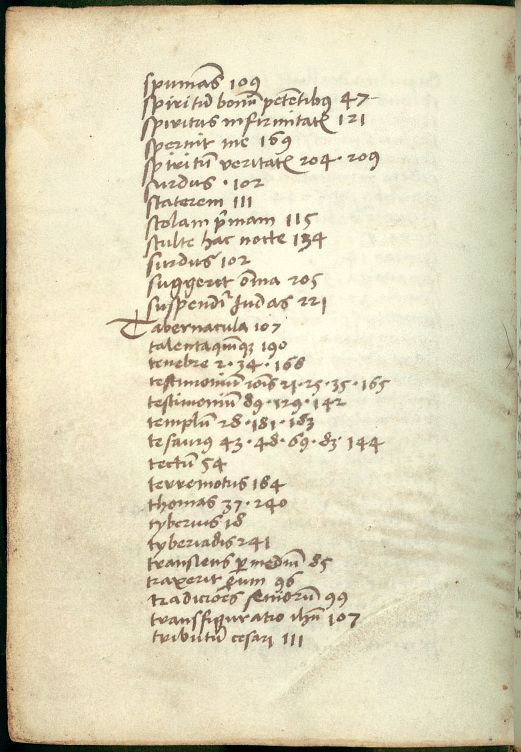 spumās 109
spiritū bonū petētibus 47
spiritus infirmitatꝭ 121
spernit me 169
spiritū veritatꝭ 204 · 209
surdus · 102
staterem 111
stolam pͥmam 115
stulte hac nocte 134
surdus 102
suggeret ōnia 205
suspendit Judas 221
Tabernacula 107
talentaquīqꝫ 190
tenebre 2 · 34 · 168
testimoniū ioīs 21 · 25 · 35 · 165
testimoniū 89 · 129 · 142
templū 28 · 181 · 183
tesaurus 43 · 48 · 69 · 83 144
tectū 54
terremotus 184
thomas 37 · 240
tyberius 18
tyberiadis 241
transiens ꝑ mediū 85
traxerit eum 96
tradicōes seniorū 99
transfiguratio ihū 107
tributū cesari 111